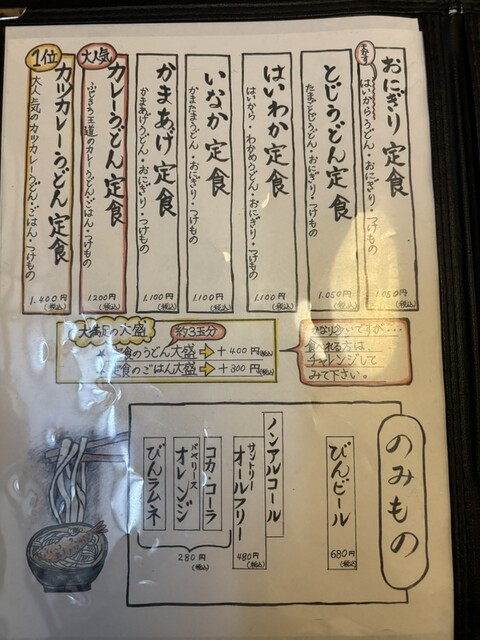 おにぎり定食
はいからうどん・おにぎり・つけもの
1.050円
(税込)
とじうどん定食
たまごとじうどん・おにぎり・つけもの
1.050円
(税込)
はいわか定食
はいから・わかめうどん・おにぎり・つけもの
1,100円
(税込)
いなか定食
かまたまうどん・おにぎり・つけもの
1,100円
(税込)
かまあげ定食
かまあげうどん・おにぎり・つけもの
1,100円
(税込)
大人気
カレーうどん定食
ふじきち王道のカレーうどん・ごはん・つけもの
1200円
(税込)
1位
カツカレーうどん定食
大人気のカツカレーうどん・ごはん・つけもの
1.400円
(税込)
大満足の大盛
約3玉分
定食のうどん大盛 ➡ +400円(税込)
定食のごはん大盛 ➡ +300円(税込)
かなり多いですが・・・
食べれる方は
チャレンジして
みて下さい。
のみもの
びんビール
680円
(税込)
ノンアルコール
サントリー
オールフリー
480円
(税込)
コカ・コーラ
バヤリース
オレンジ
びんラムネ
280円
(税込)